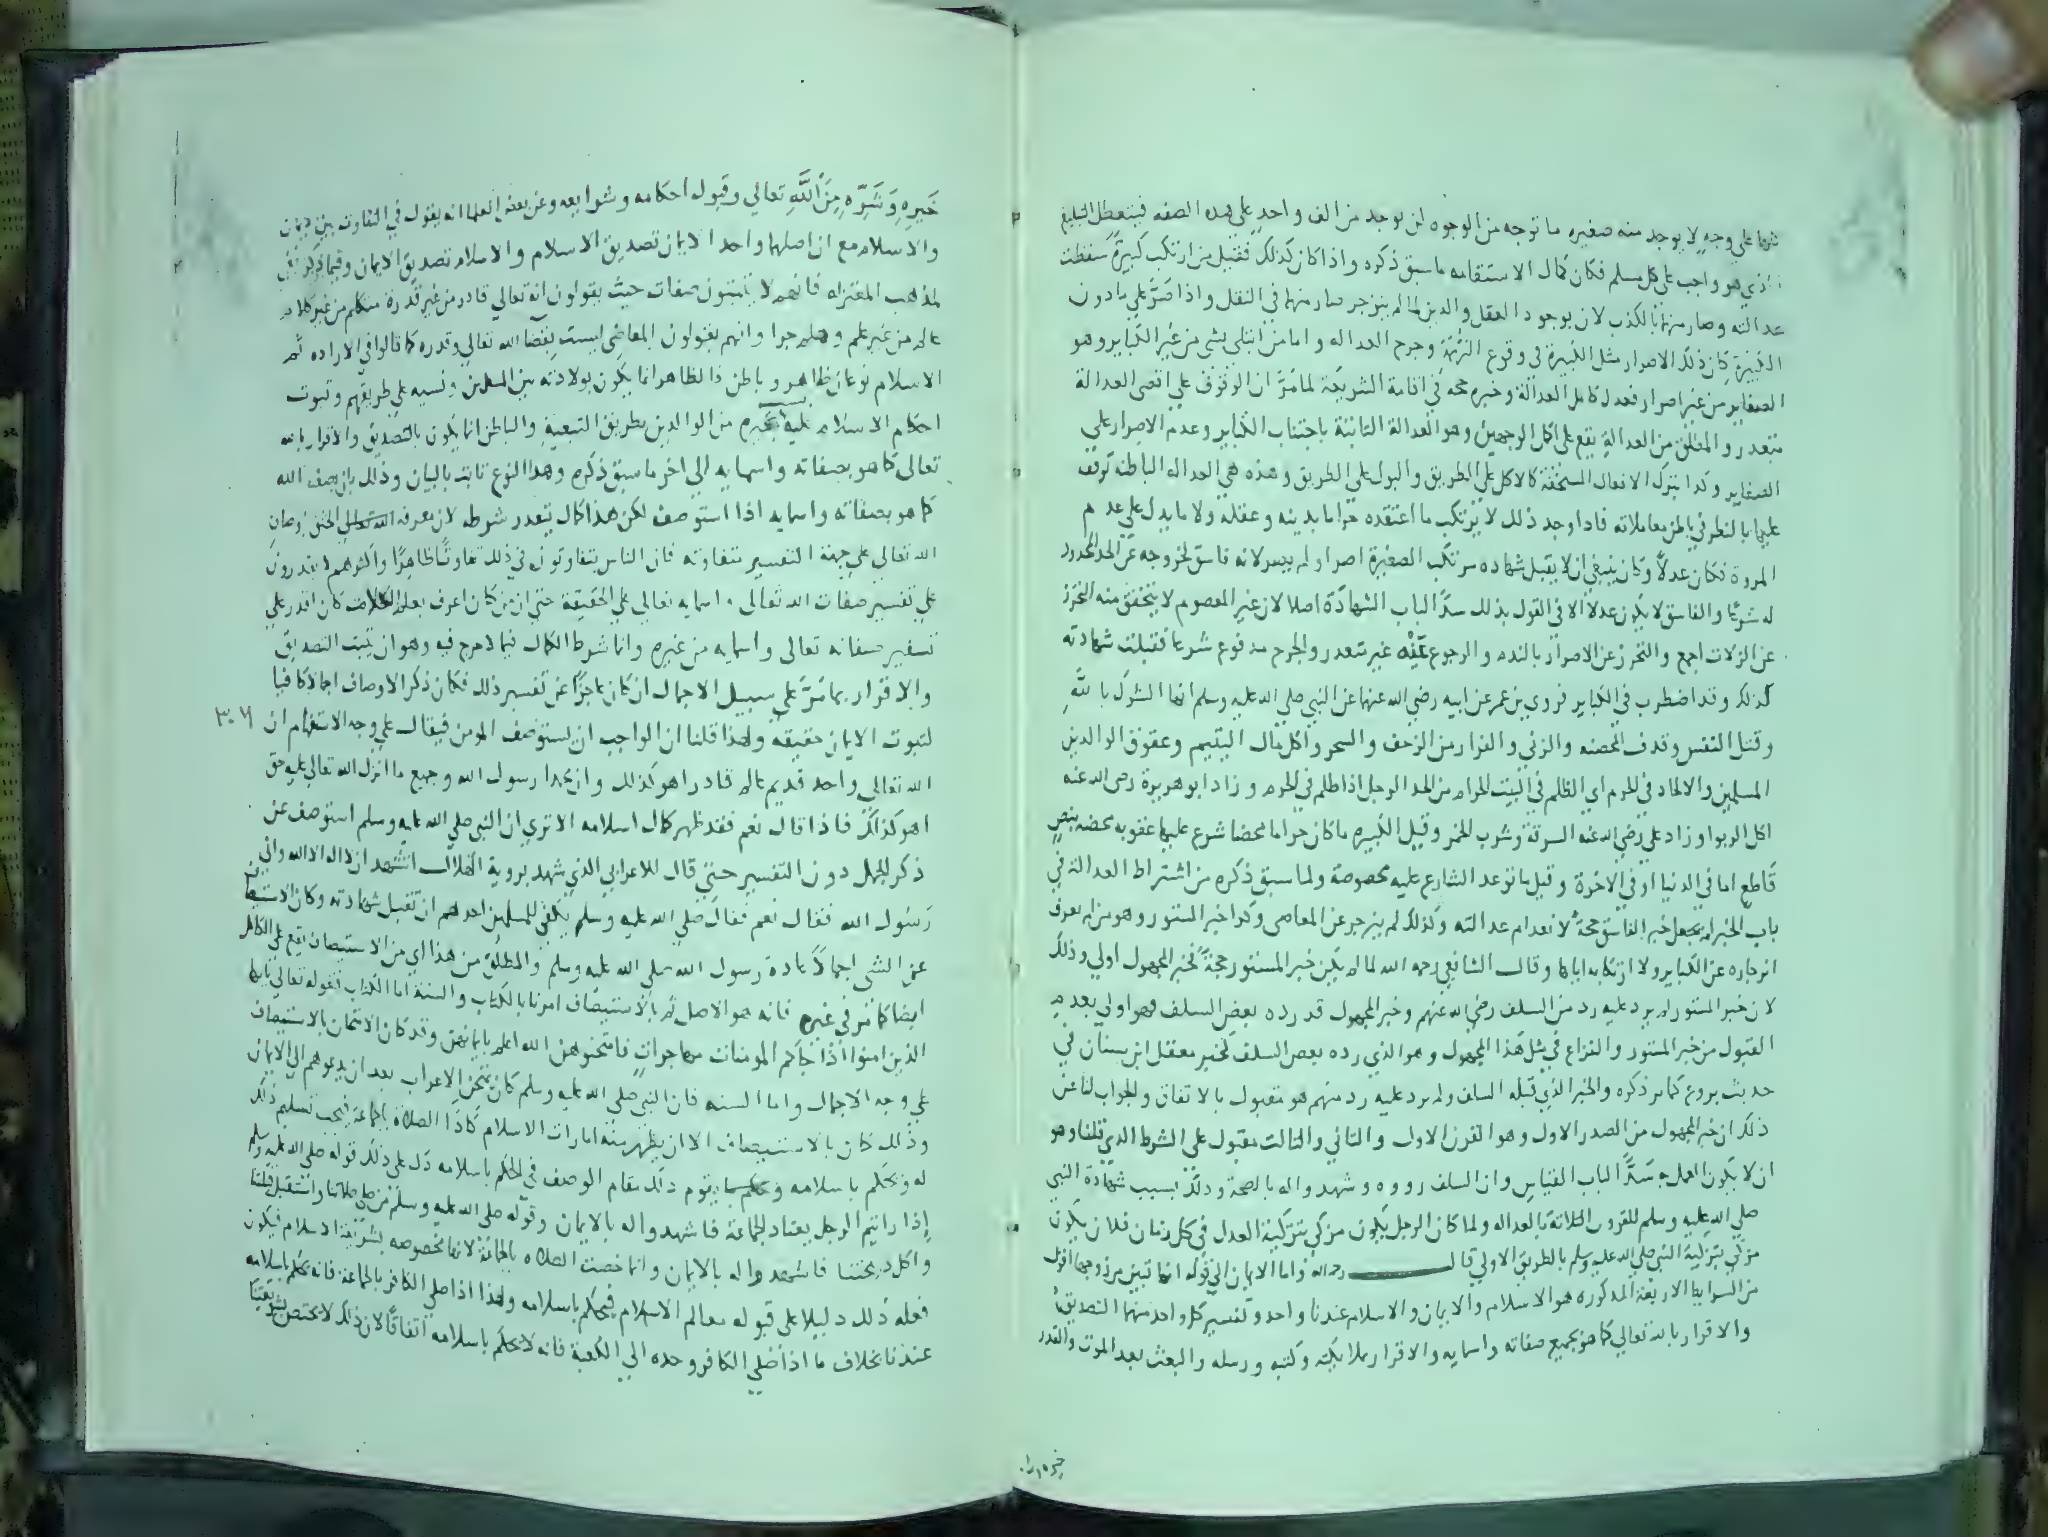 شرعا على وجه لا يوجد منه صغيره ما توجه من الوجوه لن يوجد من الف واحد على هذه الصفه فيتعطل التبليغ
الذي هو واجب على كل مسلم فكان كمال الاستقامه ما سبق ذكره واذا كان كذلك فقيل من ارتكب كبيرة سقطت
عدالته وصار متهما بالكذب لان بوجود العقل والدين لما لم ينزجر صار متهما في النقل واذا صر على ما دون
الكبيرة كان ذلك الاصرار مثل الكبيرة في وقوع التهمة وجرح العداله واما من ابتلى بشى من غير الكباير وهو
الصغاير من غير اصرار فعدل كامل العدالة وخبره حجه في اقامة الشريعة لما مر ان الوقوف على اقصى العدالة
متعدر والمطلق من العدالة يقع على اكمل الوجهين وهو العدالة الثابتة باجتناب الكباير وعدم الاصرار على
الصغاير وكدا بترك الافعال المستخفة كالاكل على الطريق والبول على الطريق وهذه هي العداله الباطنه توقف
عليها بالنظر في باطن معاملاته فاذا وجد ذلك لا يرتكب ما اعتقده حراما بدينه وعقله ولا ما يدل على عدم
المروة فكان عدلا وكان ينبغي ان لا يقبل شهاده مرتكب الصغيرة اصر او لم يصر لانه فاسق لخروجه عن الحد المحدود
له شرعا والفاسق لا يكون عدلا الا في القول بذلك سدا لباب الشهادة اصلا لان غير المعصوم لا يتحقق منه التحرز
عن الزلات اجمع والتحرز عن الاصرار بالندم والرجوع عنه غير متعدر والحرج مدفوع شرعا فقبلت شهادته
كذلك وقد اضطرب في الكباير فروى بن عمر عن ابيه رضي الله عنهما عن النبي صلى الله عليه وسلم انها الشرك بالله
وقتل النفس وقدف المحصنه والزنى والفرار من الزحف والسحر واكل مال اليتيم وعقوق الوالدين
المسلمين والالحاد في الحرم اي الظلم في البيت الحرام من الحد الرجل اذا ظلم في الحرم وزاد ابو هريرة رضى الله عنه
اكل الربوا وزاد علي رضي الله عنه السرقة وشرب الخمر وقيل الكبيره ما كان حراما محضا شرع عليها عقوبه محضه بنص
قاطع اما في الدنيا او في الاخرة وقيل ما توعد الشارع عليه مخصوصة ولما سبق ذكره من اشتراط العدالة في
باب الخبر لم يجعل خبر الفاسق حجة لانعدام عدالته وكذلك لم ينزجر عن المعاصى وكدا خبر المستور وهو من لم يعرف
انزجاره عن الكباير ولا ارتكابه اياها وقال الشافعي رحمه الله لما لم يكن خبر المستور حجة فخبر المجهول اولي وذلك
لان خبر المستور لم يرد عليه رد من السلف رضي الله عنهم وخبر المجهول قد رده بعض السلف فهو اولى بعدم
القبول من خبر المستور والنزاع في مثل هذا المجهول وهو الذي رده بعض السلف كخبر معقل ابن سنان في
حديث بروع كما مر ذكره والخبر الذي قبله السلف ولم يرد عليه رد منهم هو مقبول بالاتفاق والجواب لنا عن
ذلك ان خبر المجهول من الصدر الاول وهو القرن الاول والثاني والثالث مقبول على الشرط الذي قلنا وهو
ان لا يكون العمل به سدا لباب القياس وان السلف رووه وشهدوا له بالصحة وذلك بسبب شهادة النبي
صلى الله عليه وسلم للقرون الثلاثة بالعداله ولما كان الرجل يكون مزكى بتزكية العدل في كل زمان فلان يكون
مزكى بتزكية النبي صلى الله عليه وسلم بالطريق الاولي قال رحمه الله واما الايمان الى قوله انها تبين من زوجها اقول
من الشرايط الاربعة المذكوره هو الاسلام والايمان والاسلام عندنا واحد وتفسير كل واحد منهما التصديق
والاقرار بالله تعالي كما هو بجميع صفاته واسمايه والاقرار بملايكته وكتبه ورسله والبعث بعد الموت والقدر
خيره وشره من الله تعالي وقبول احكامه وشرايعه وعن بعض العلما انه يقول في التفاوت بين الايمان
والاسلام مع ان اصلهما واحد الايمان تصديق الاسلام والاسلام تصديق الايمان وفيما ذكر نفي
لمذهب المعتزله فانهم لا يثبتون صفات حيث يقولون انه تعالي قادر من غير قدرة متكلم من غير كلام
عالم من غير علم وهلم جرا وانهم يقولون المعاضي ليست بقضا الله تعالي وقدره كما قالوا في الاراده ثم
الاسلام نوعان ظاهر وباطن فالظاهر انما يكون بولادته بين المسلمين ونسبه على طريقهم وثبوت
احكام الاسلام عليه من الوالدين بطريق التبعية والباطن انما يكون بالتصديق والاقرار بالله
تعالى كما هو بصفاته واسمايه الي اخر ما سبق ذكره وهدا النوع ثابت بالبيان وذلك بان يصف الله
كما هو بصفاته واسمايه اذا استوصف لكن هذا كمال يتعدر شرطه لان معرفه الخلق اوصاف
الله تعالي علي جهة التفسير متفاوته فان الناس يتفاوتون في ذلك تفاوتا ظاهرا واكثرهم لا يقدرون
علي تفسير صفات الله تعالى واسمايه تعالي على الحقيقة حتى ان من كان اعرف بعلم الكلام كان اقدر على
تفسير صفاته تعالى واسمايه من غيره وانما شرط الكمال فيما لا حرج فيه وهو ان يثبت التصديق
والاقرار بما مر على سبيل الاجمال ان كان عاجزا عن تفسير ذلك فكان ذكر الاوصاف اجمالا كافيا
لثبوت الايمان حقيقه ولهذا قلنا ان الواجب ان يستوصف المومن فيقال على وجه الاستفهام ان
٣٠٦
الله تعالى واحد قديم عالم قادر اهو كذلك وان محمدا رسول الله وجميع ما انزل الله تعالي عليه حق
اهو كذلك فاذا قال نعم فقد ظهر كمال اسلامه الا تري ان النبي صلى الله عليه وسلم استوصف عن
ذكر الجمل دون التفسير حتى قال للاعرابي الذي شهد بروية الهلال اتشهد ان لا اله الا الله واني
رسول الله فقال نعم فقال صلى الله عليه وسلم يكفى للمسلمين احدهم ان تقبل شهادته وكان الاستيصاف
عن الشى اجمالا عادة رسول الله صلى الله عليه وسلم والمطلق من هذا اي من الاستيصاف يقع على الكامل
ايضا كما مر في غيره فانه هو الاصل ثم بالاستيصاف امرنا بالكتاب والسنة اما الكتاب فقوله تعالي يا ايها
الذين امنوا اذا جاكم المومنات مهاجرات فامتحنوهن الله اعلم بايمانهن وقد كان الامتحان بالاستيصاف
على وجه الاجمال واما السنه فان النبي صلى الله عليه وسلم كان يمتحن الاعراب بعد ان يدعوهم الى الايمان
وذلك كان بالاستيصاف الا ان يظهر منه امارات الاسلام كاداء الصلاة بالجماعة فيجب تسليم ذلك
له ونحكم باسلامه ويقوم ذلك مقام الوصف في الحكم باسلامه دل على ذلك قوله صلى الله عليه وسلم
إذا رايتم الرجل يعتاد الجماعة فاشهدوا له بالايمان وقوله صلى الله عليه وسلم من صلى صلاتنا واستقبل قبلتنا
واكل ذبيحتنا فاشهدوا له بالايمان وانما خصت الصلاه بالجماعة لانها مخصوصه بشريعة الاسلام فيكون
فعله ذلك دليلا على قبوله معالم الاسلام فيحكم باسلامه ولهذا اذا صلى الكافر بالجماعة فانه نحكم باسلامه
عندنا بخلاف ما اذا صلى الكافر وحده الي الكعبة فانه لا نحكم باسلامه اتفاقا لان ذلك لا يختص بشريعتنا